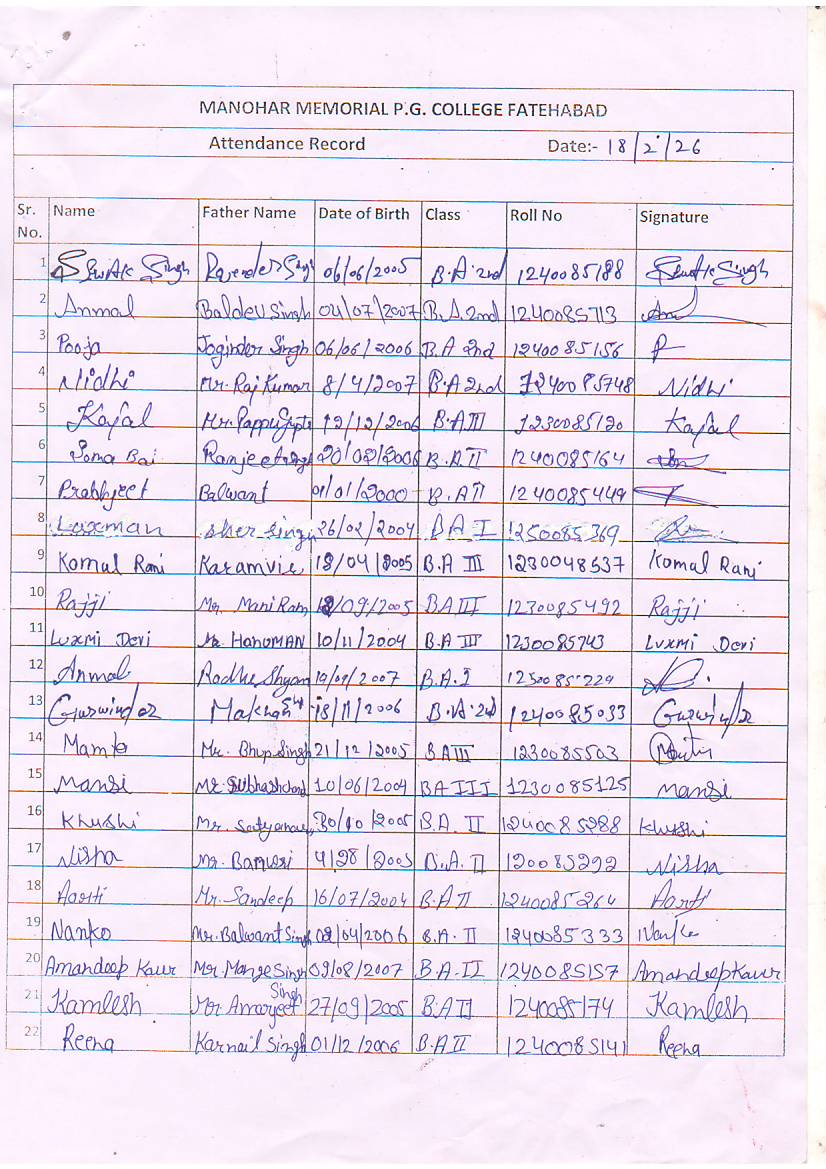 MANOHAR MEMORIAL P.G. COLLEGE FATEHABAD
Attendance Record Date:- 18/2/26
Sr. No. Name Father Name Date of Birth Class Roll No Signature
1 Sewak Singh Ravender Singh 06/06/2005 B.A 2nd 1240085188 Sewak Singh
2 Anmol Baldev Singh 04/07/2007 B.A. 2nd 1240085713
3 Pooja Joginder Singh 06/06/2006 B.A 2nd 1240085156 P
4 Nidhi Mr. Raj Kumar 8/4/2007 B.A 2nd 1240085748 Nidhi
5 Kajal Mr. Pappu Gupta 12/12/2006 B.A III 1230085120 Kajal
6 Soma Bai Ranjeet Singh 20/02/2006 B.A.II 1240085164
7 Prabhjeet Balwant 01/01/2000 B.A II 1240085449
8 Laxman Sher Singh 26/02/2004 BA I 1250085369
9 Komal Rani Karamvir 18/04/2005 B.A III 1230048537 Komal Rani
10 Rajji Mr. Mani Ram 12/09/2005 BA III 1230085492 Rajji
11 Luxmi Devi Mr. HANUMAN 10/11/2004 B.A III 1230085743 Luxmi Devi
12 Anmol Radhe Shyam 2007 B.A.I 1250085229
13 Gurwinder Makhan 18/11/2006 B.A 2nd 1240085033 Gurwinder
14 Mamta Mr. Bhup Singh 21/12/2005 BA III 1230085503
15 Mansi Mr Subhashchand 10/06/2004 BA III 1230085125 Mansi
16 Khushi Mr. 30/10/2005 B.A. II 1240085288 Khushi
17 Nisha Mr. Banwari 4/28/2005 B.A. II 120085292 Nisha
18 Aarti Mr. Sandeep 16/07/2004 B.A II 1240085264 Aarti
19 Nanko Mr. Balwant Singh 02/04/2006 B.A. II 1240085333 Nanko
20 Amandeep Kaur Mr. Mange Singh 09/08/2007 B.A-II 1240085157 Amandeep Kaur
21 Kamlesh Mr Amarjeet Singh 27/09/2005 B.A II 1240085174 Kamlesh
22 Reena Karnail Singh 01/12/2006 B.A II 1240085141 Reena